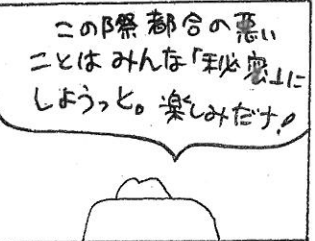 この際都合の悪い
ことはみんな「秘密」に
しようっと。楽しみだナ!